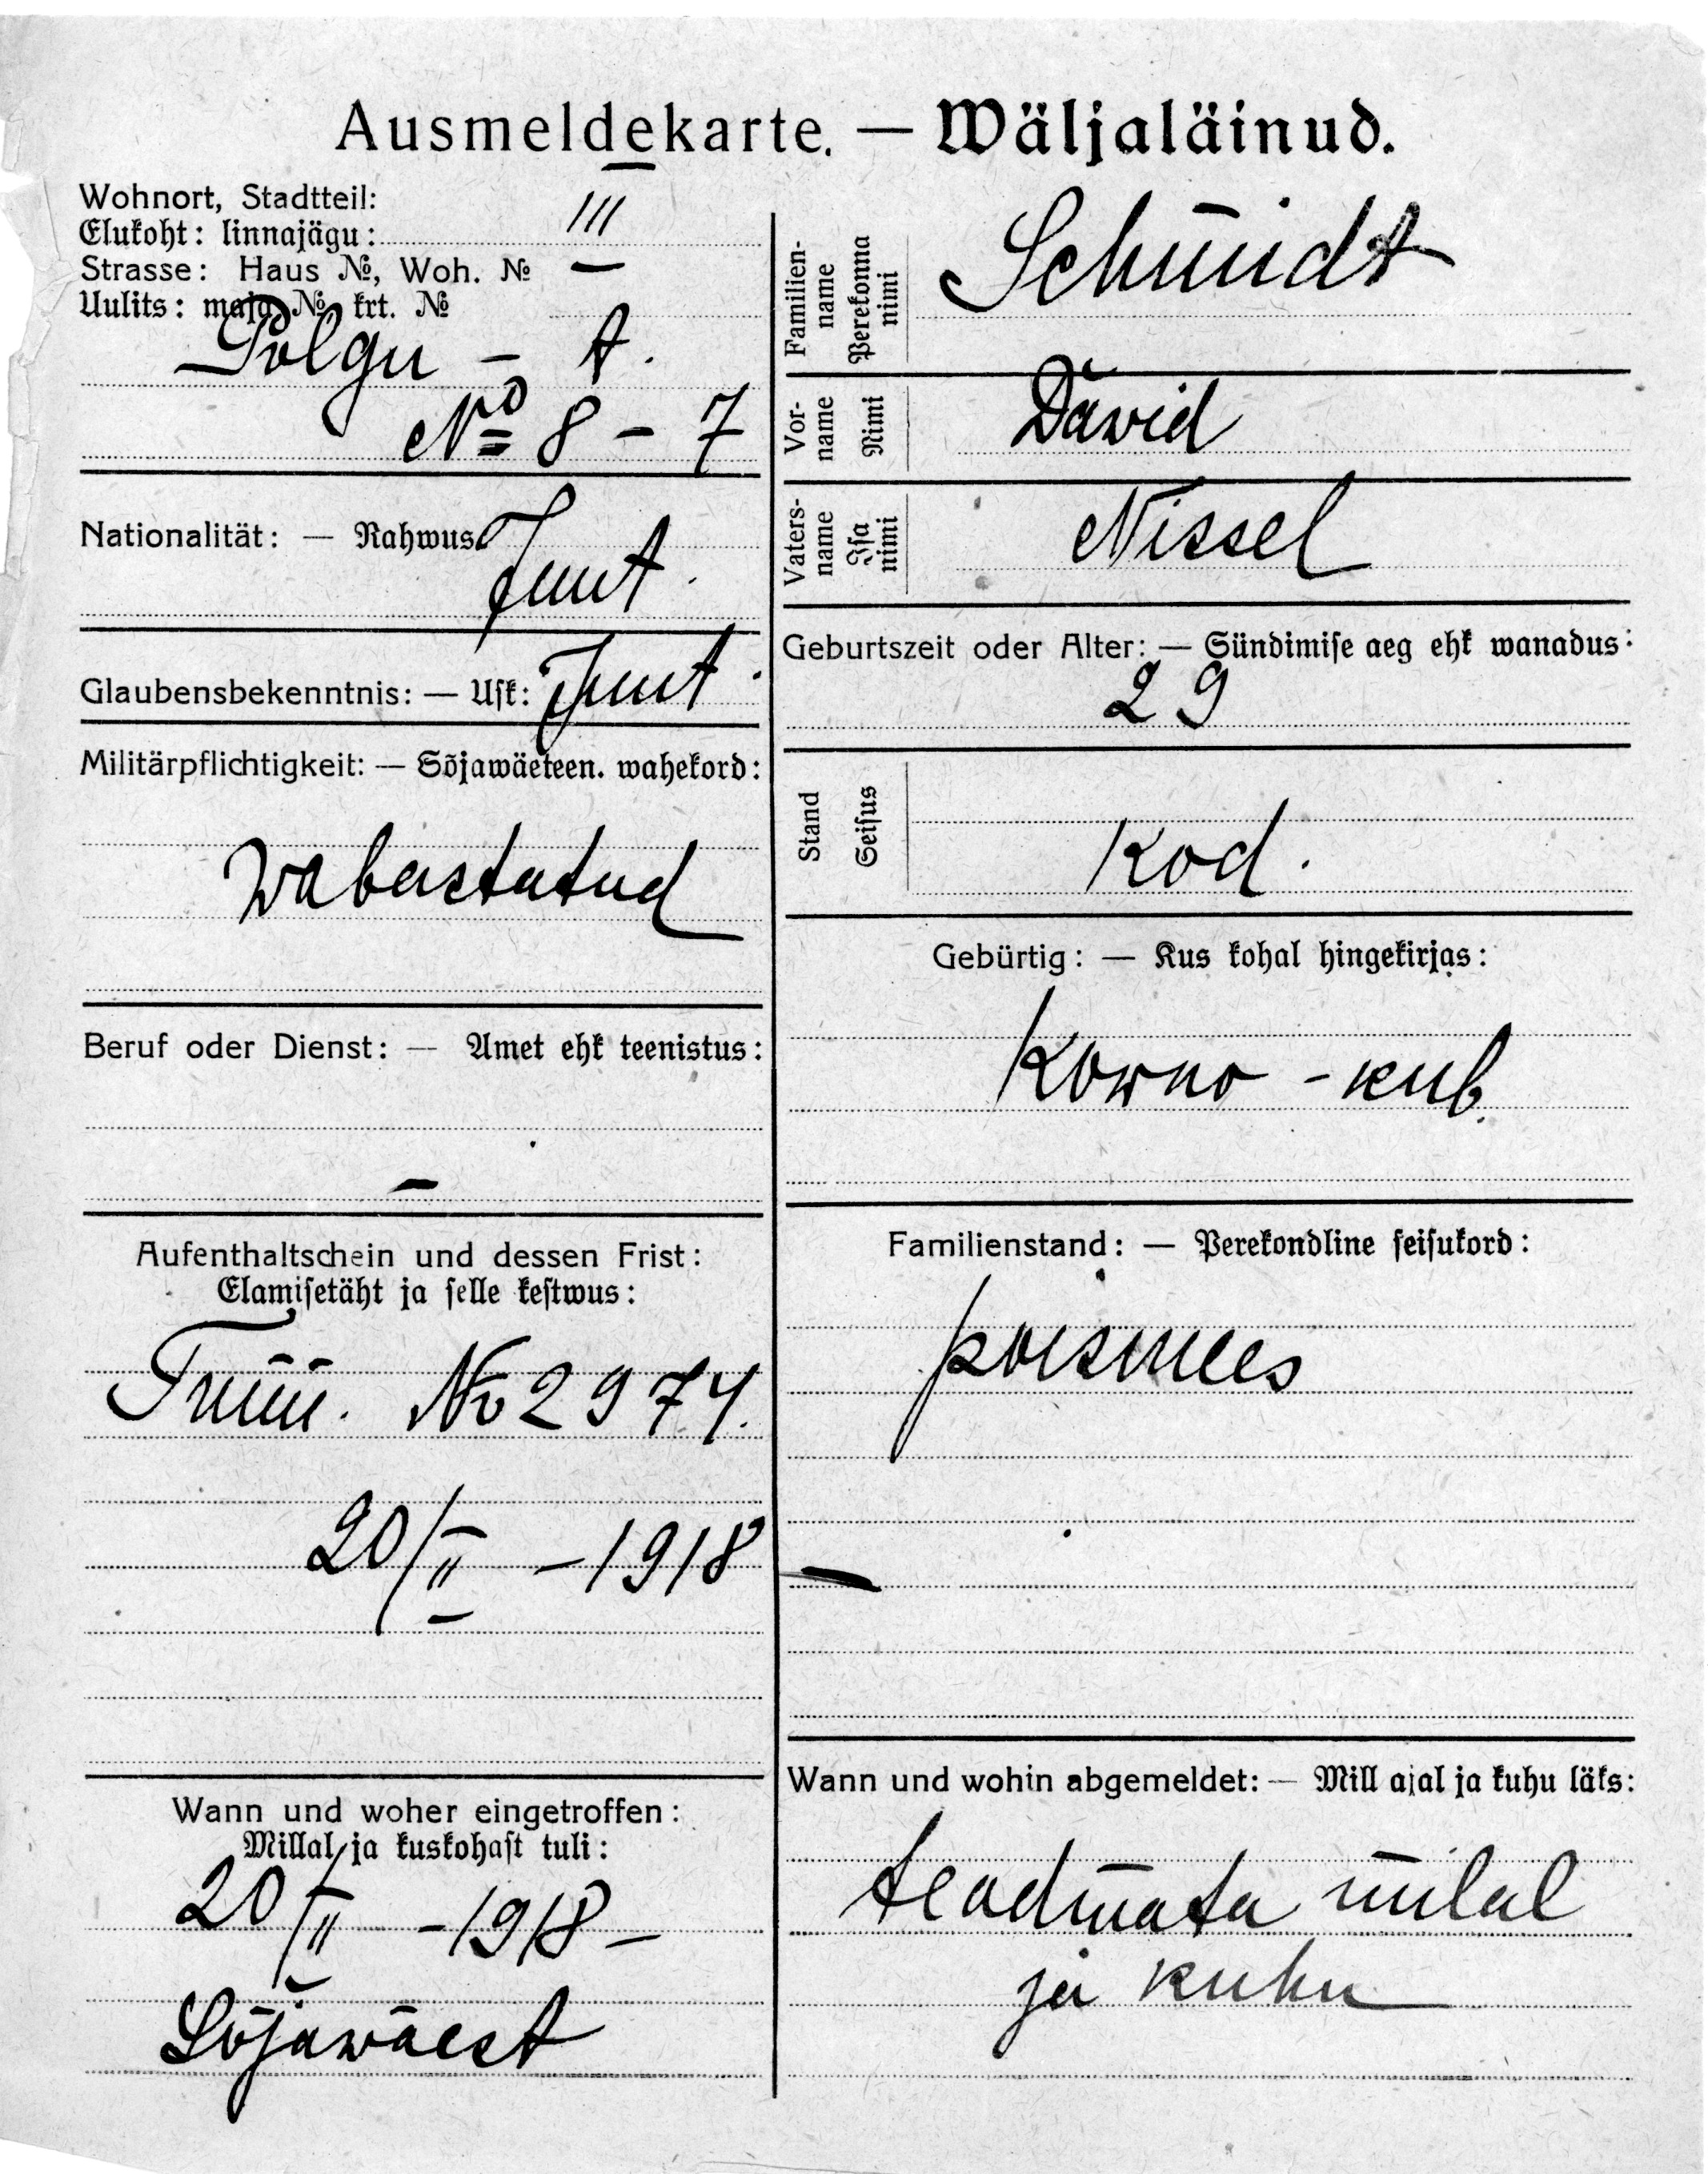 Ausmeldekarte. — Wäljaläinud.
Wohnort, Stadtteil:
Elukoht: linnajägu:
III
Strasse: Haus №, Woh. №
Uulits: maja № krt. №
Põlgu – t.
№ 8 – 7
Nationalität: — Rahwus:
Juut.
Glaubensbekenntnis: — Usk: Juut.
Militärpflichtigkeit: — Sõjawäeteen. wahekord:
Wabastatud
Beruf oder Dienst: — Amet ehk teenistus:
–
Aufenthaltschein und dessen Frist:
Elamisetäht ja selle kestwus:
No 2974.
20/II – 1918
Wann und woher eingetroffen:
Millal ja kuskohast tuli:
20/II – 1918 –
Sõjawäest
Familien-
name
Perekonna
nimi
Schmidt
Vor-
name
Nimi
Dawid
Vaters-
name
Isa
nimi
Nissel
Geburtszeit oder Alter: — Sündimise aeg ehk wanadus:
29
Stand
Seisus
Kod.
Gebürtig: — Kus kohal hingekirjas:
Kowno - kub.
Familienstand: — Perekondline seisukord:
poismees
–
Wann und wohin abgemeldet: — Mill ajal ja kuhu läks:
teadmata milal
ja kuhu